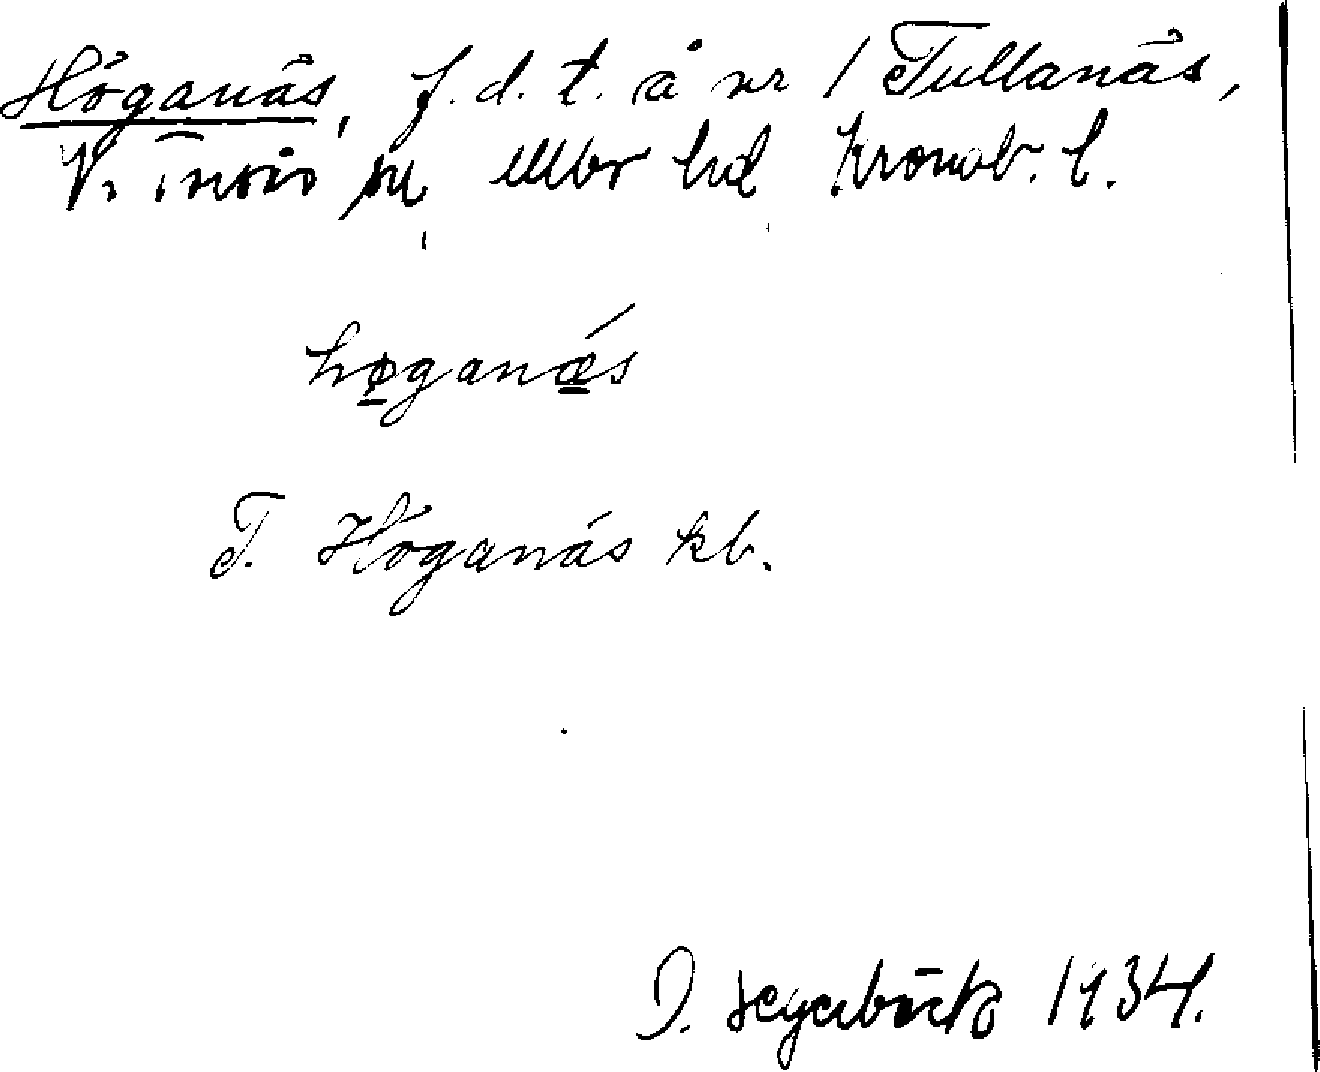 Höganäs, f.d.t. å nr 1 Tullanäs,
V. Torsås sn, Allbo hd Kronob. l.
høganæs
T. Höganäs kb.
D. Segerbäck 1934.